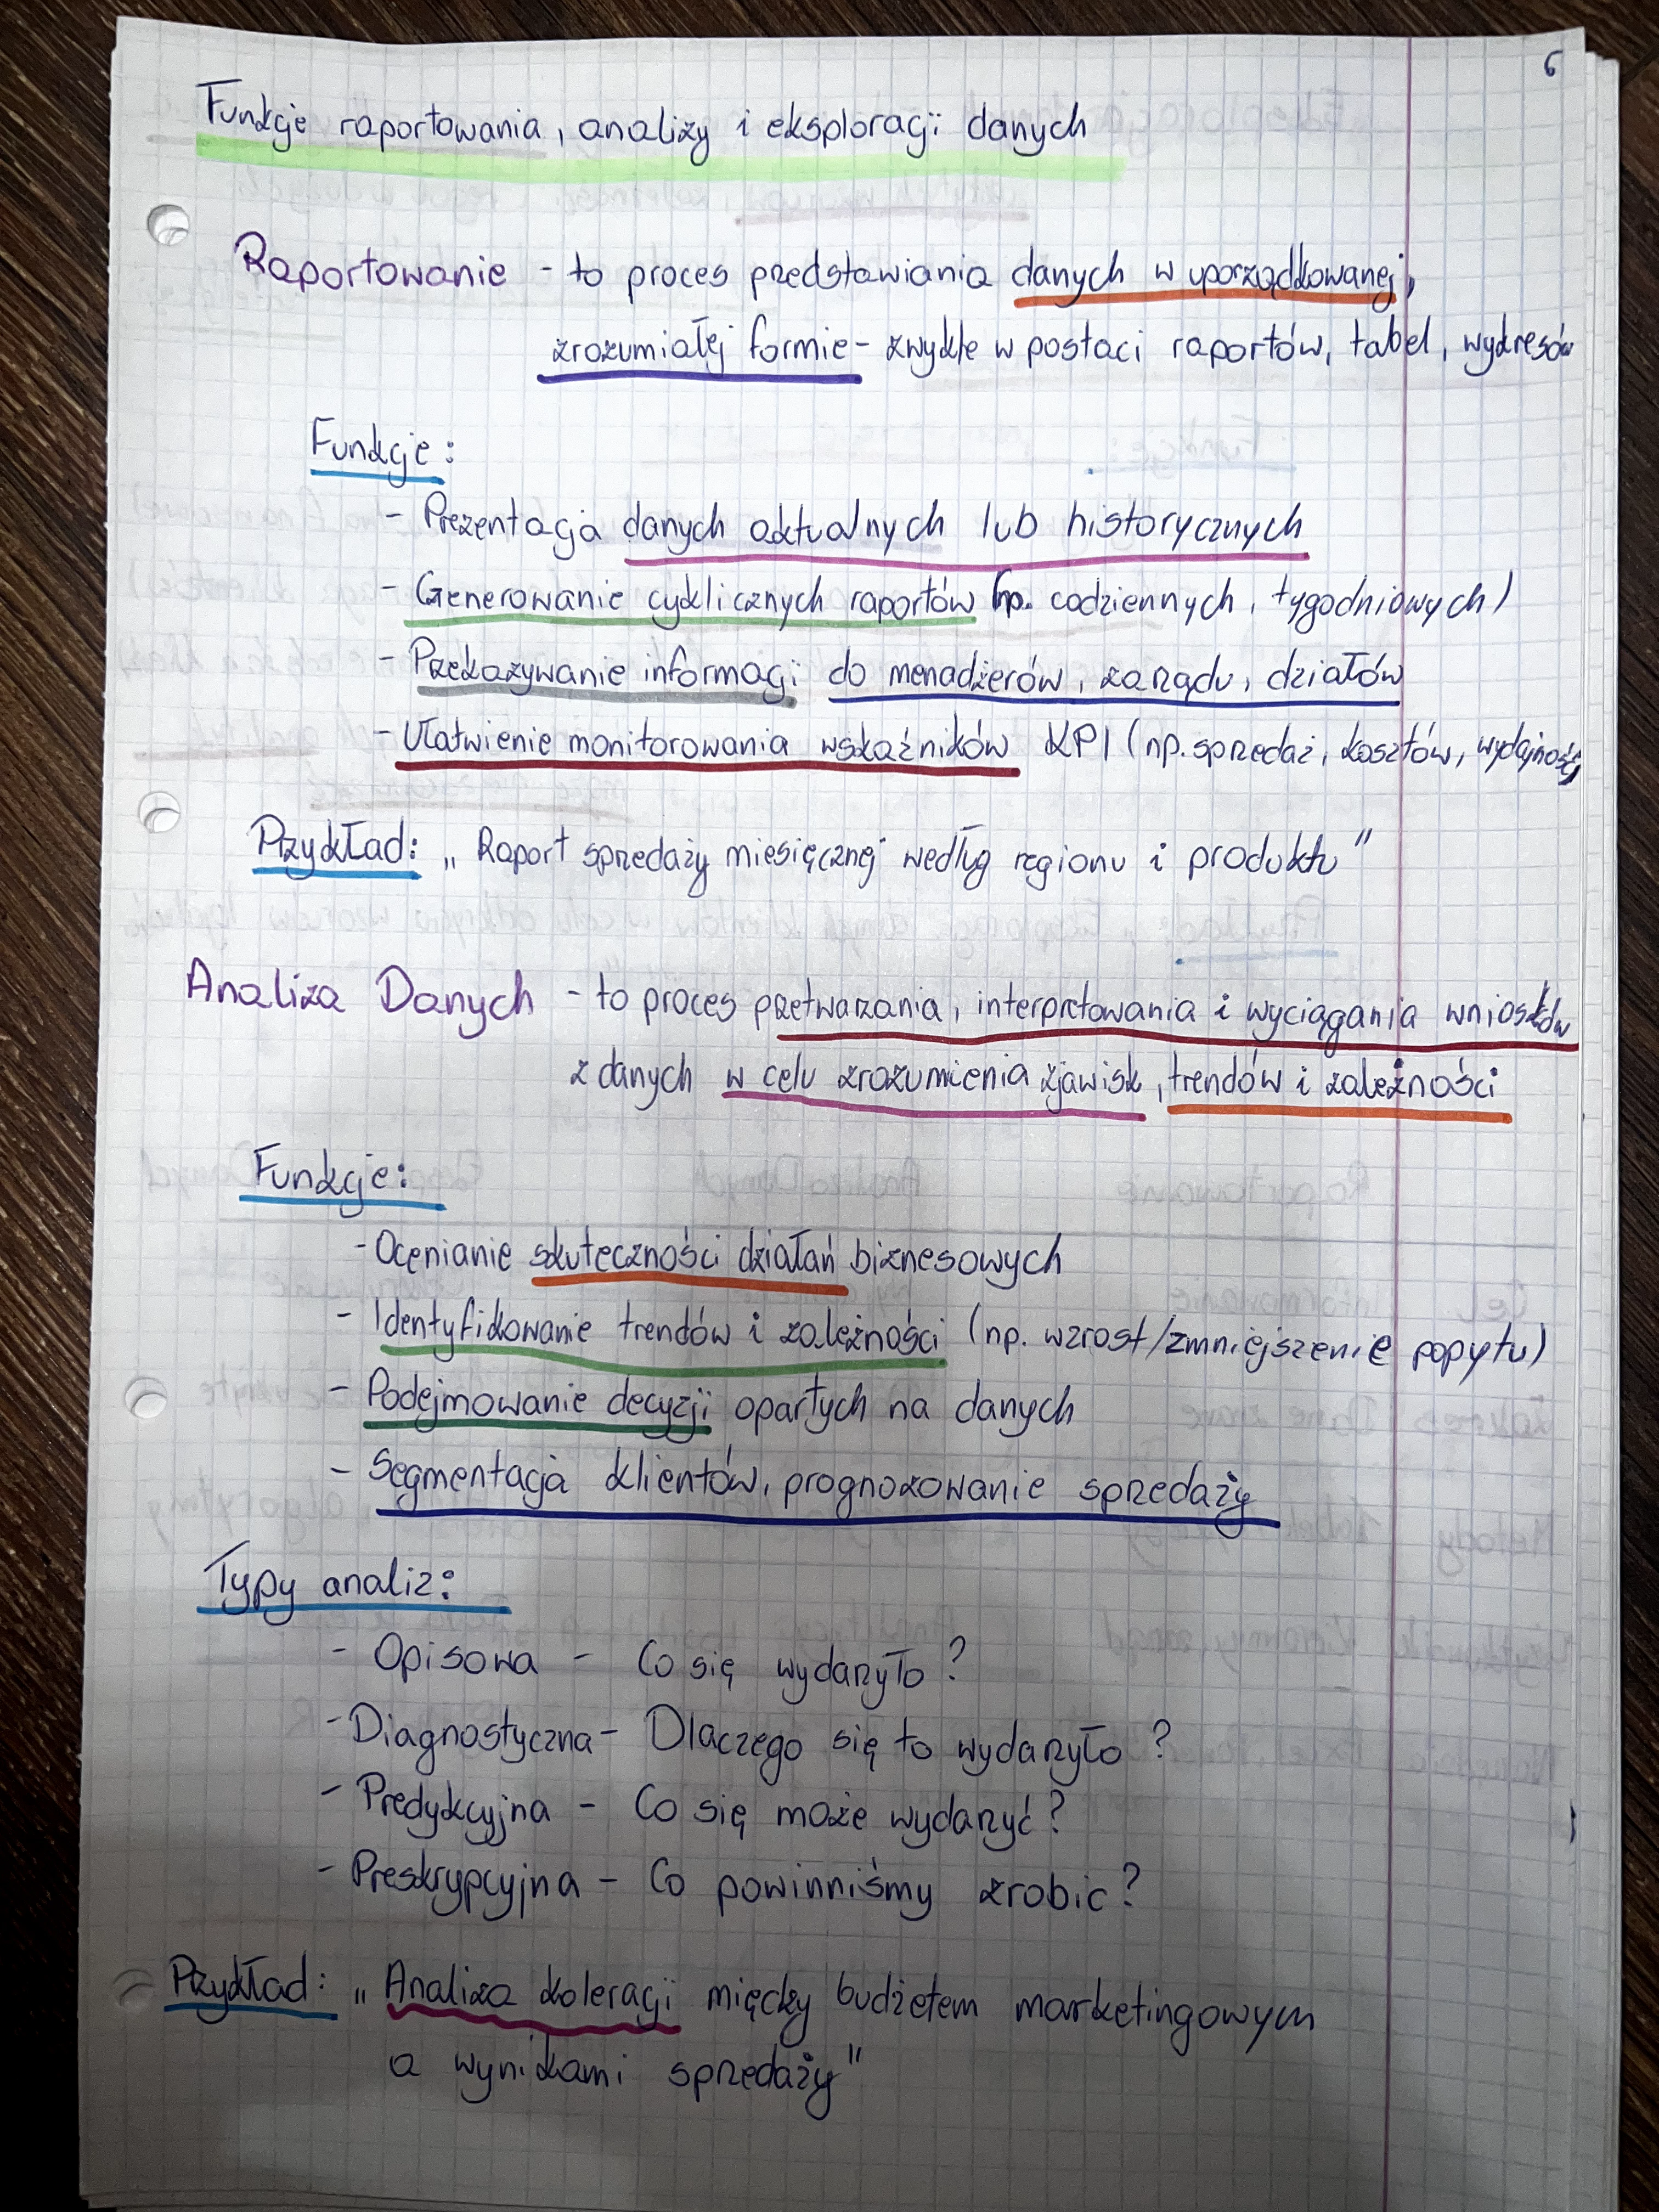 6
Funkcje raportowania, analizy i eksploracji danych
Raportowanie - to proces przedstawiania danych w uporządkowanej,
zrozumiałej formie - zwykle w postaci raportów, tabel, wykresów
Funkcje:
- Prezentacja danych aktualnych lub historycznych
- Generowanie cyklicznych raportów (np. codziennych, tygodniowych)
- Przekazywanie informacji do menadżerów, zarządu, działów
- Ułatwienie monitorowania wskaźników KPI (np. sprzedaż, kosztów, wydajność)
Przykład: „Raport sprzedaży miesięcznej według regionu i produktu"
Analiza Danych - to proces przetwarzania, interpretowania i wyciągania wniosków
z danych w celu zrozumienia zjawisk, trendów i zależności
Funkcje:
- Ocenianie skuteczności działań biznesowych
- Identyfikowanie trendów i zależności (np. wzrost/zmniejszenie popytu)
- Podejmowanie decyzji opartych na danych
- Segmentacja klientów, prognozowanie sprzedaży
Typy analiz:
- Opisowa - Co się wydarzyło?
- Diagnostyczna - Dlaczego się to wydarzyło?
- Predykcyjna - Co się może wydarzyć?
- Preskrypcyjna - Co powinniśmy zrobic?
Przykład: „Analiza koleracji między budżetem marketingowym
a wynikami sprzedaży"